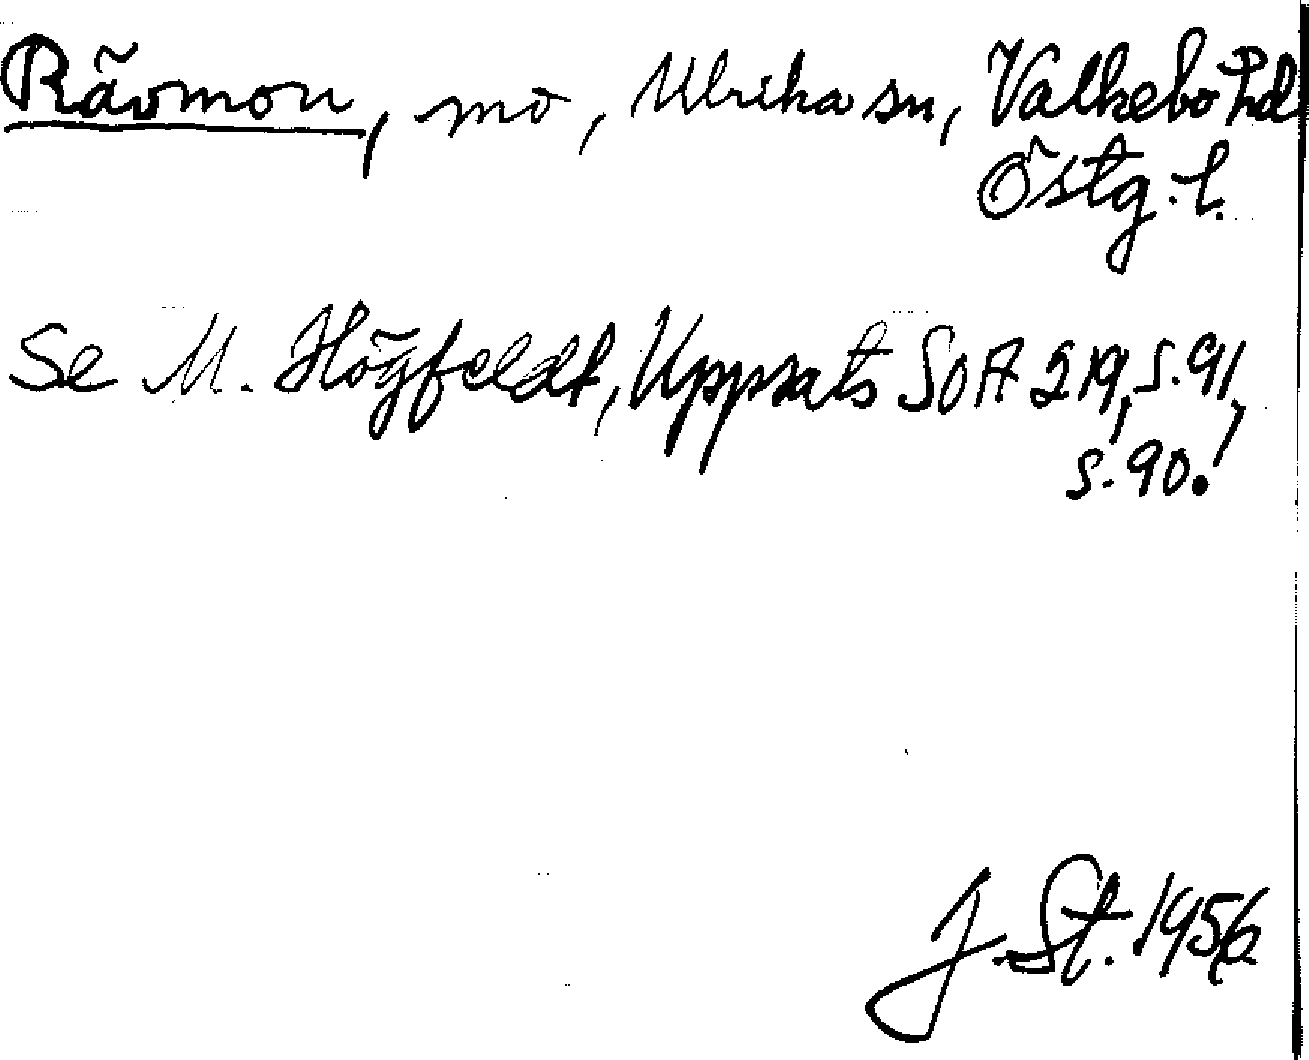 Rävmon, mo, Ulrika sn, Valkebo hd
Östg. l.
Se M. Högfeldt, Uppsats SOA 219, s. 91,
s. 90.
J. St. 1956